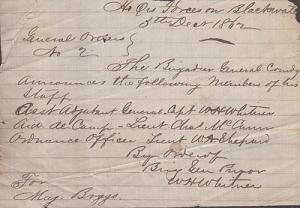 Hd Qrs Forces on Blackwater
5th Decr 1862
General Orders
No 2
The Brigadier General Comdg
Announces the following Members of his
Staff.
Asst Adjutant General Capt W H Whitner
Aid de Camp - Lieut Chas
Ordnance Officer Lieut W A Shepard
By Order of
Brig Gen Pryor
W H Whitner
For
Maj. Boggs.